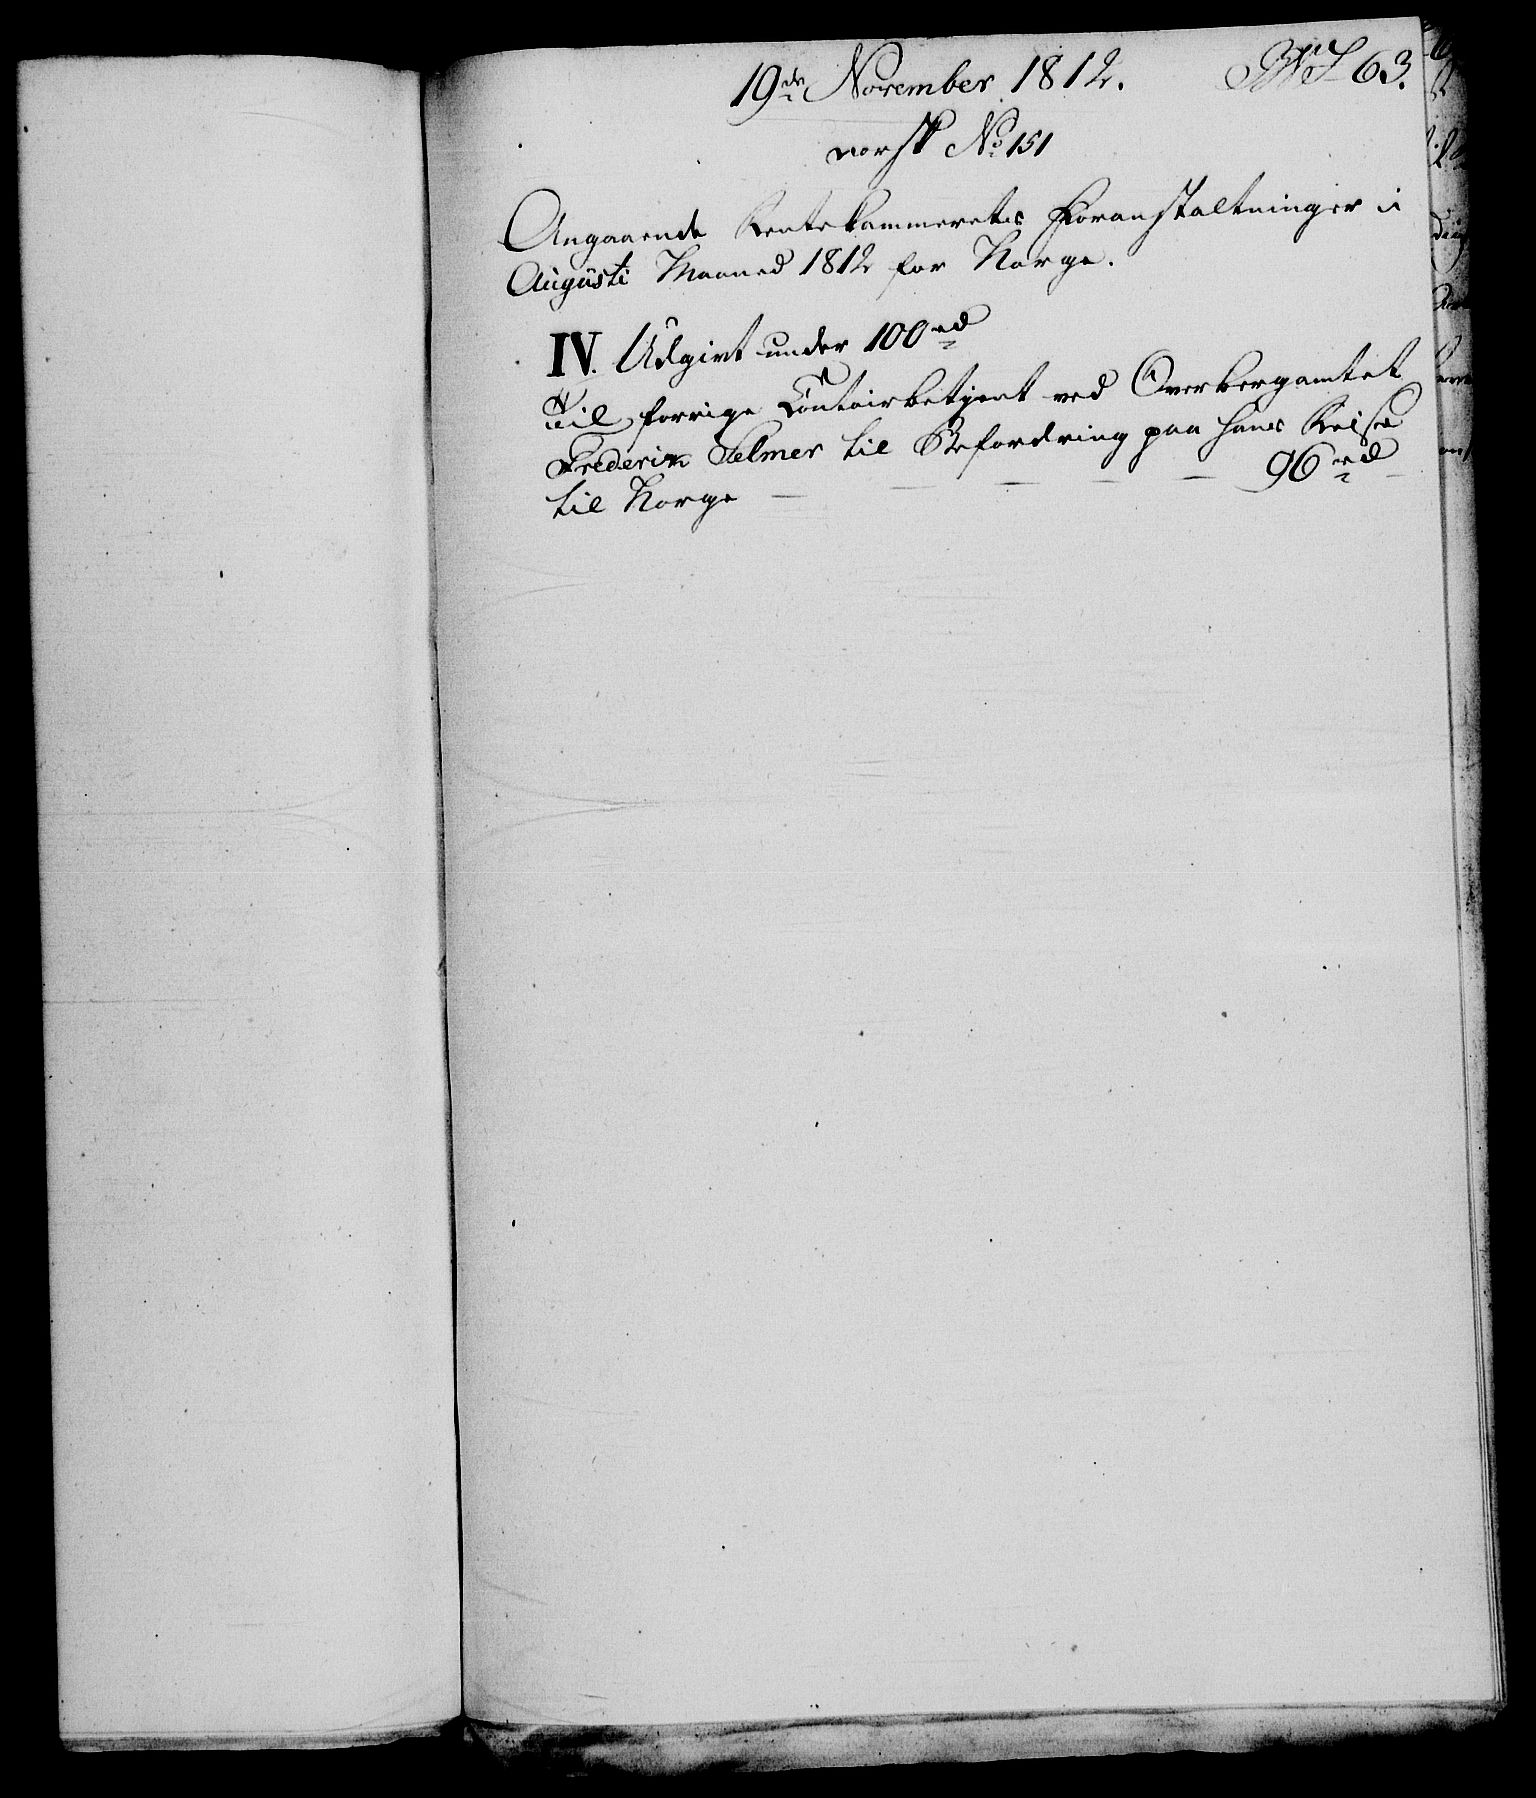 19de November 1812. 63.
norsk No 151
Angaaende Rentekammerets Foranstaltninger i
Augústi Maaned 1812 for Norge.
IV. Udgivt under 100 rd
Til forrige Contoirbetjent ved Overbergamtet
Frederik Selmer til Befordring paa hans Reise
til Norge — — — — — 96 rd —